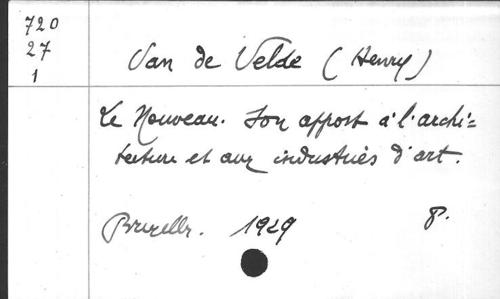 720
27
1
Van de Velde (Henry)
Le Nouveau. Son apport à l'archi=
tecture et aux industries d'art.
Bruxelles. 1929 8.